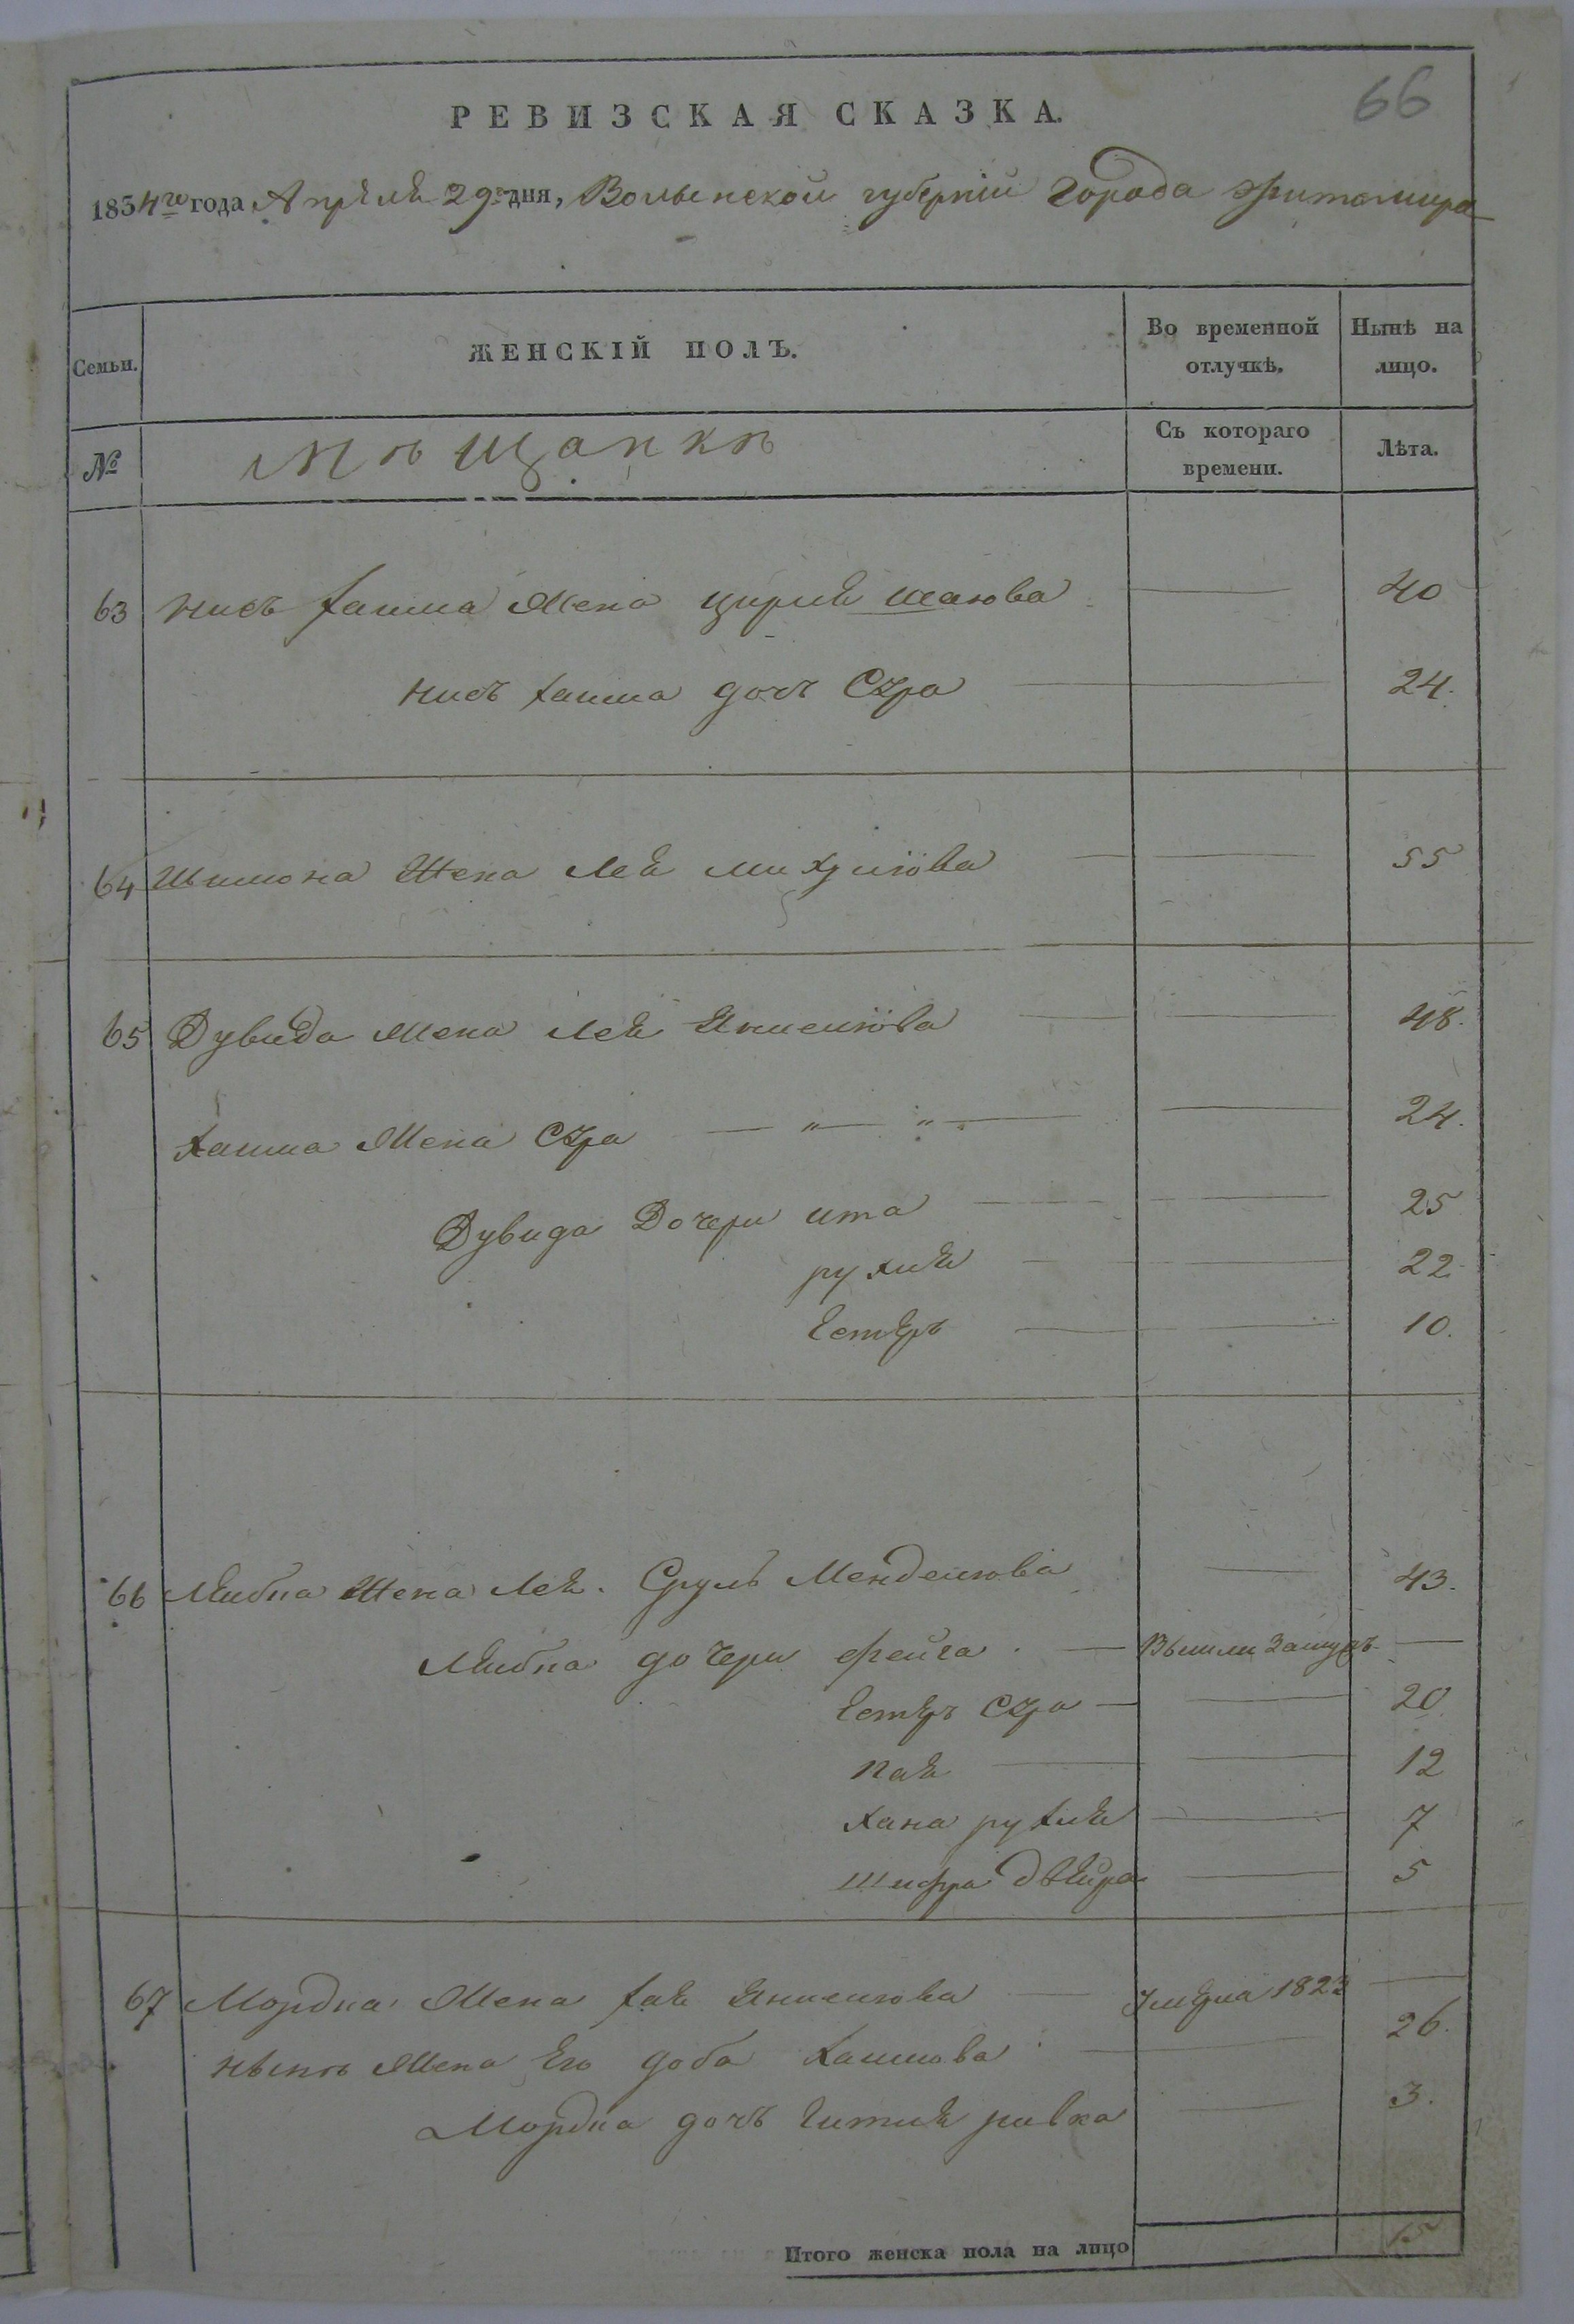 66
РЕВИЗСКАЯ СКАЗКА.
1834го года Апрѣля 29го дня, Волынской губернiи Города Житомира
Семьи.
ЖЕНСКIЙ ПОЛЪ.
Во временной отлучкѣ.
Нынѣ на лицо.
№
Мѣщанкѣ
Съ котораго времени.
Лѣта.
63 Хаима Жена Цирля Шаюва 40
Хаима дочь Сура 24.
64 Шимона Жена Лея 55
65 Дувида Жена Лея Янкелюва 48.
Хаима Жена Сура — " — " — 24.
Дувида Дочери Ита 25
рухля 22
Естеръ 10.
66 Лейбна Жена Лея. Сруль Менделюва 43.
Лейбна дочери фейга. Вышли замужъ.
Естеръ Сура 20
12
Хана рухля 7
Шифра Двейра 5
67 Мордка Жена Хая Янкелюва Умерла 1823
нынѣ Жена Его доба Хаимова 26.
Мордка дочь Гитля ривка 3.
Итого женска пола на лицо 15